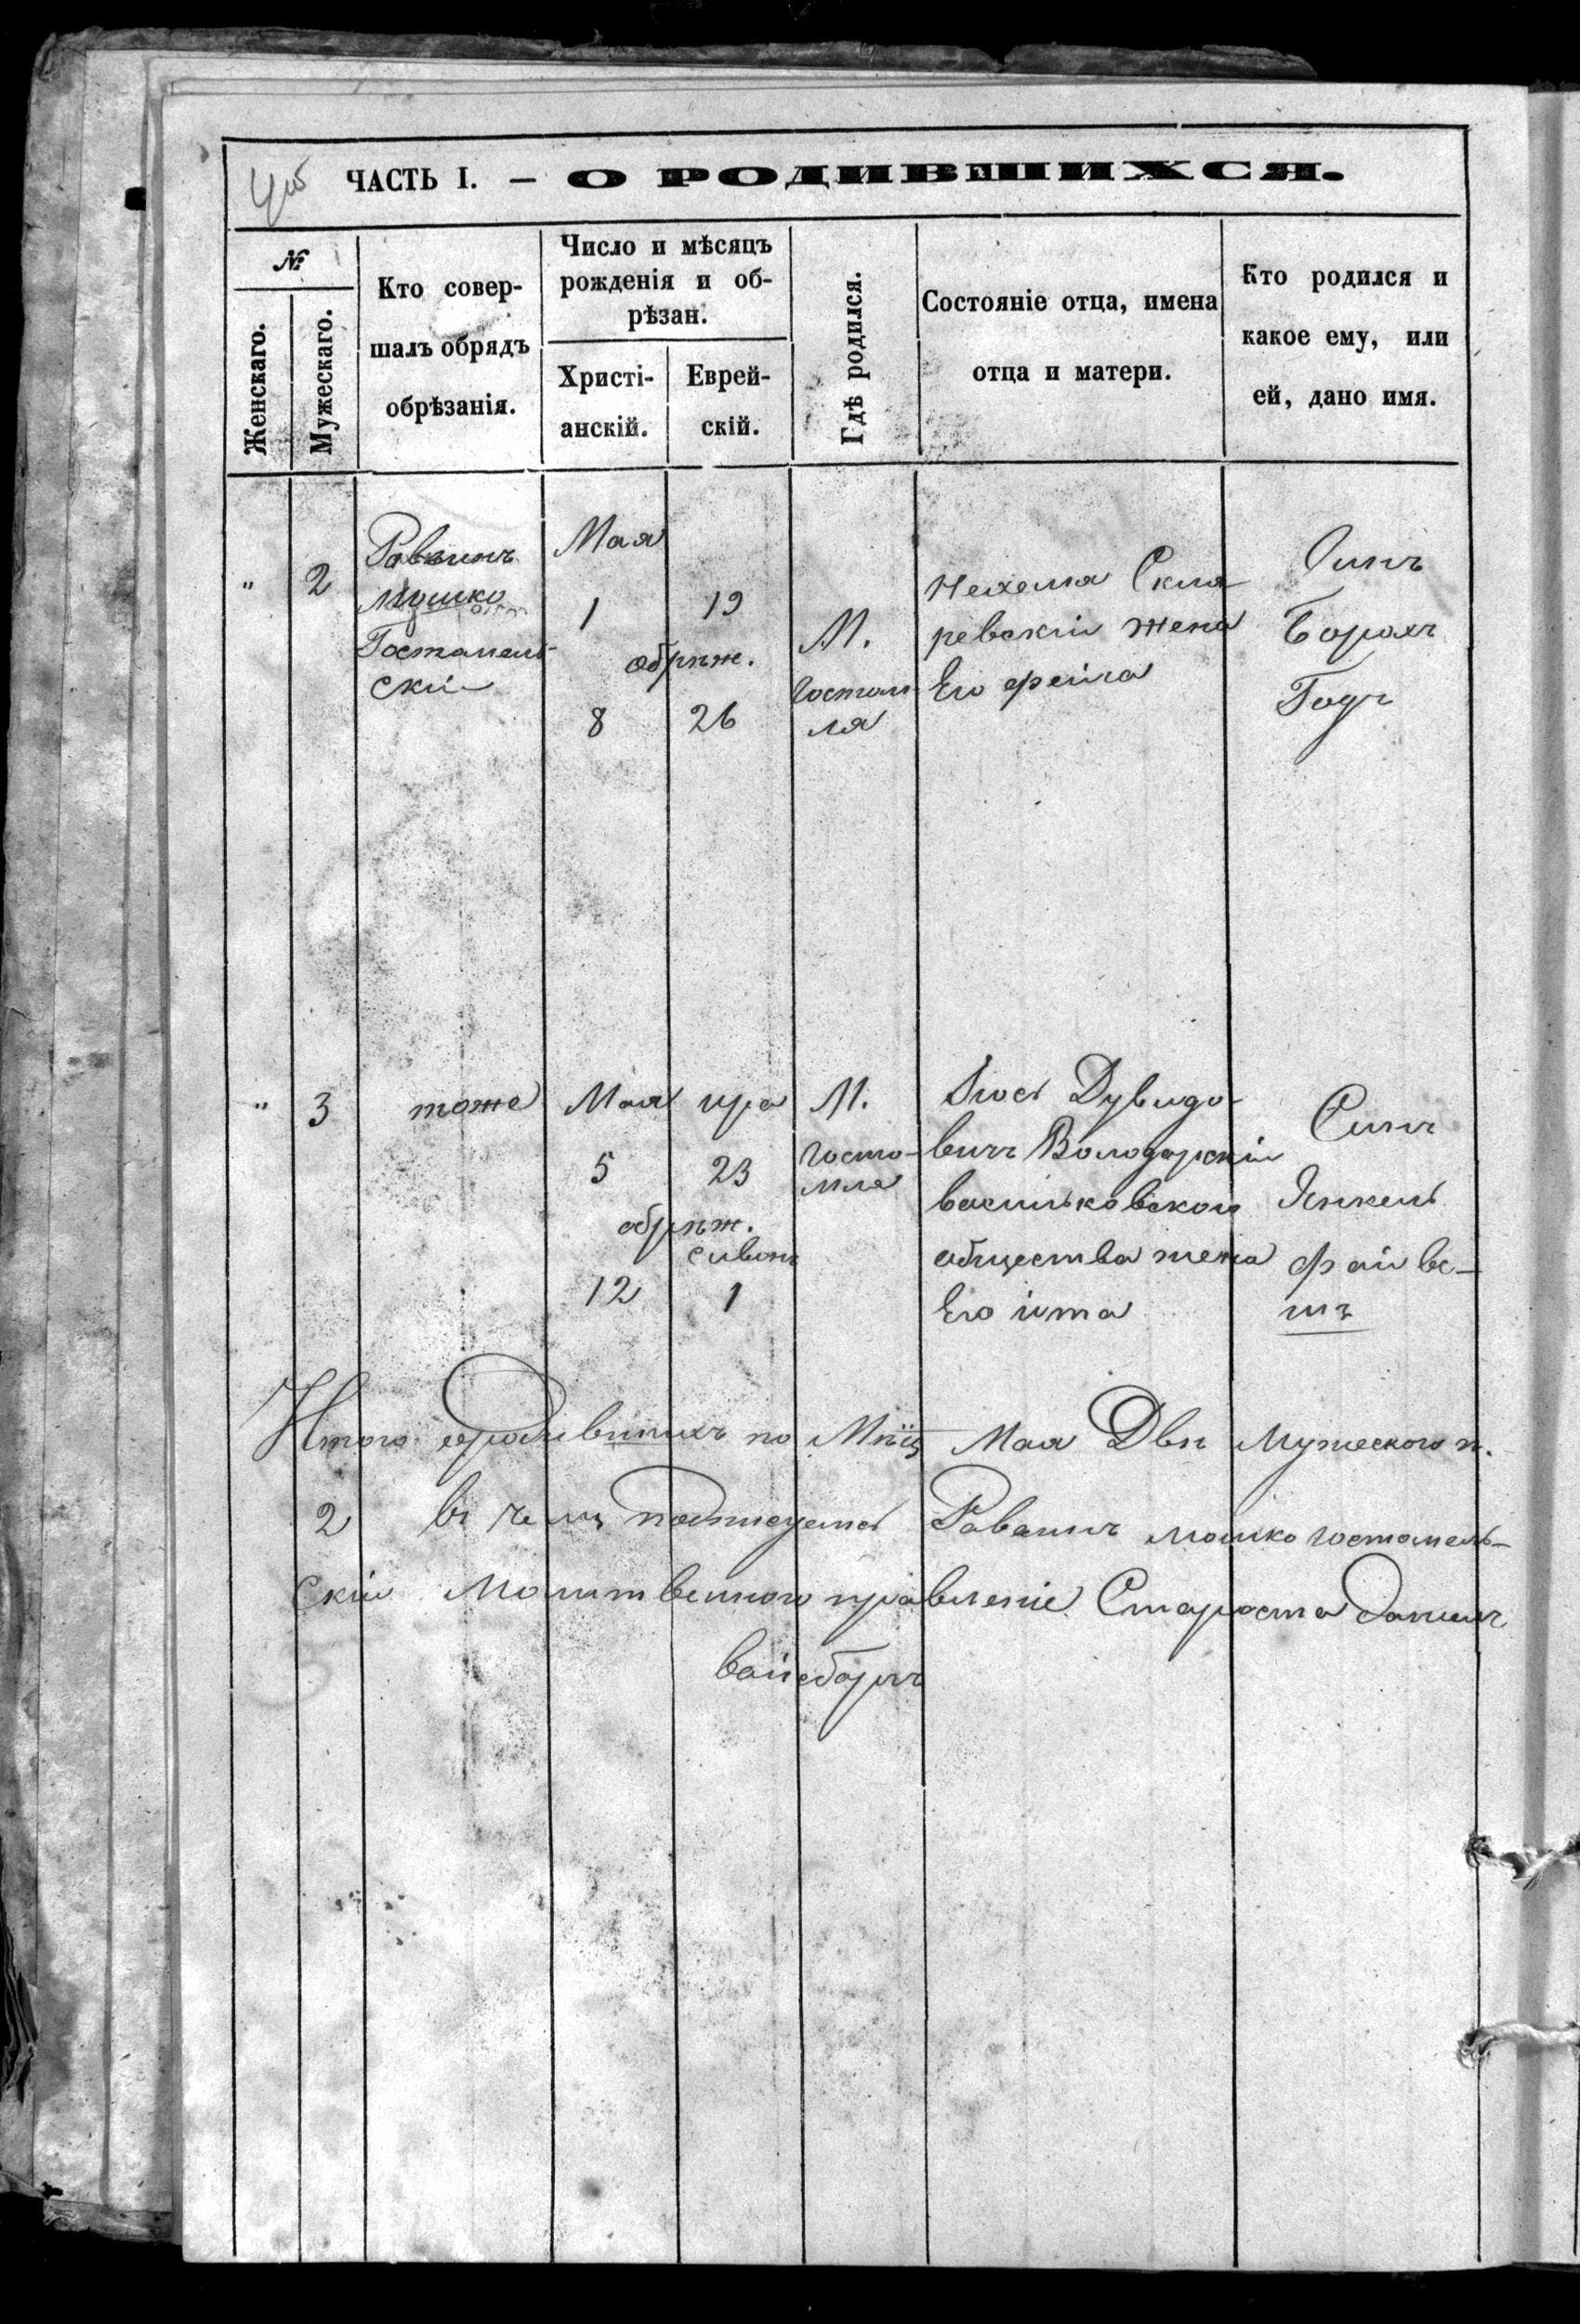 ЧАСТЬ I. — О РОДИВШИХСЯ.
№
Женскаго.
Мужескаго.
Кто совер-
шалъ обрядъ
обрѣзанія.
Число и мѣсяцъ
рожденія и об-
рѣзан.
Христі-
анскій.
Еврей-
скій.
Гдѣ родился.
Состояніе отца, имена
отца и матери.
Кто родился и
какое ему, или
ей, дано имя.
" 2
Раввинъ
Мошко
Гостомель-
скій
Мая
1 19
обрѣж.
8 26
М.
Гостом
ля
Нехема Скля-
ревскій жена
Его фейга
Синъ
Борахъ
Годъ
" 3
тоже
Мая ира
5 23
обрѣж.
сивон
12 1
М.
Госто-
мля
Іось Дувидо-
вичъ Володарскій
васильковскою
общества жена
Его ита
Синъ
Янкель
файве-
шъ
Итого народившихъ по Мѣц Мая Двѣ Мужескою п.
2 въ чемъ подписуемъ Равинъ мошко гостомель-
скій Молитвенного правленіе Староста Данилъ
вайсбарнъ